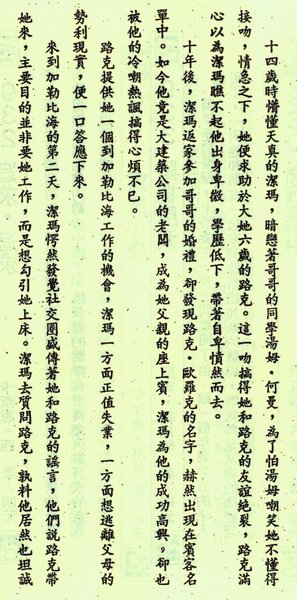 十四歲時懵懂天真的潔瑪，暗戀著哥哥的同學湯姆．何曼，為了怕湯姆嘲笑她不懂得
接吻，情急之下，她便求助於大她六歲的路克。這一吻搞得她和路克的友誼絕裂，路克滿
心以為潔瑪瞧不起他出身卑微，學歷低下，帶著自卑憤然而去。
十年後，潔瑪返家參加哥哥的婚禮，卻發現路克．歐羅克的名字，赫然出現在賓客名
單中。如今他竟是大建築公司的老闆，成為她父親的座上賓，潔瑪為他的成功高興，卻也
被他的冷嘲熱諷搞得心煩不已。
路克提供她一個到加勒比海工作的機會，潔瑪一方面正值失業，一方面想逃離父母的
勢利現實，便一口答應下來。
來到加勒比海的第二天，潔瑪愕然發覺社交圈盛傳著她和路克的謠言，他們說路克帶
她來，主要目的並非要她工作，而是想勾引她上床。潔瑪去質問路克，孰料他居然也坦誠